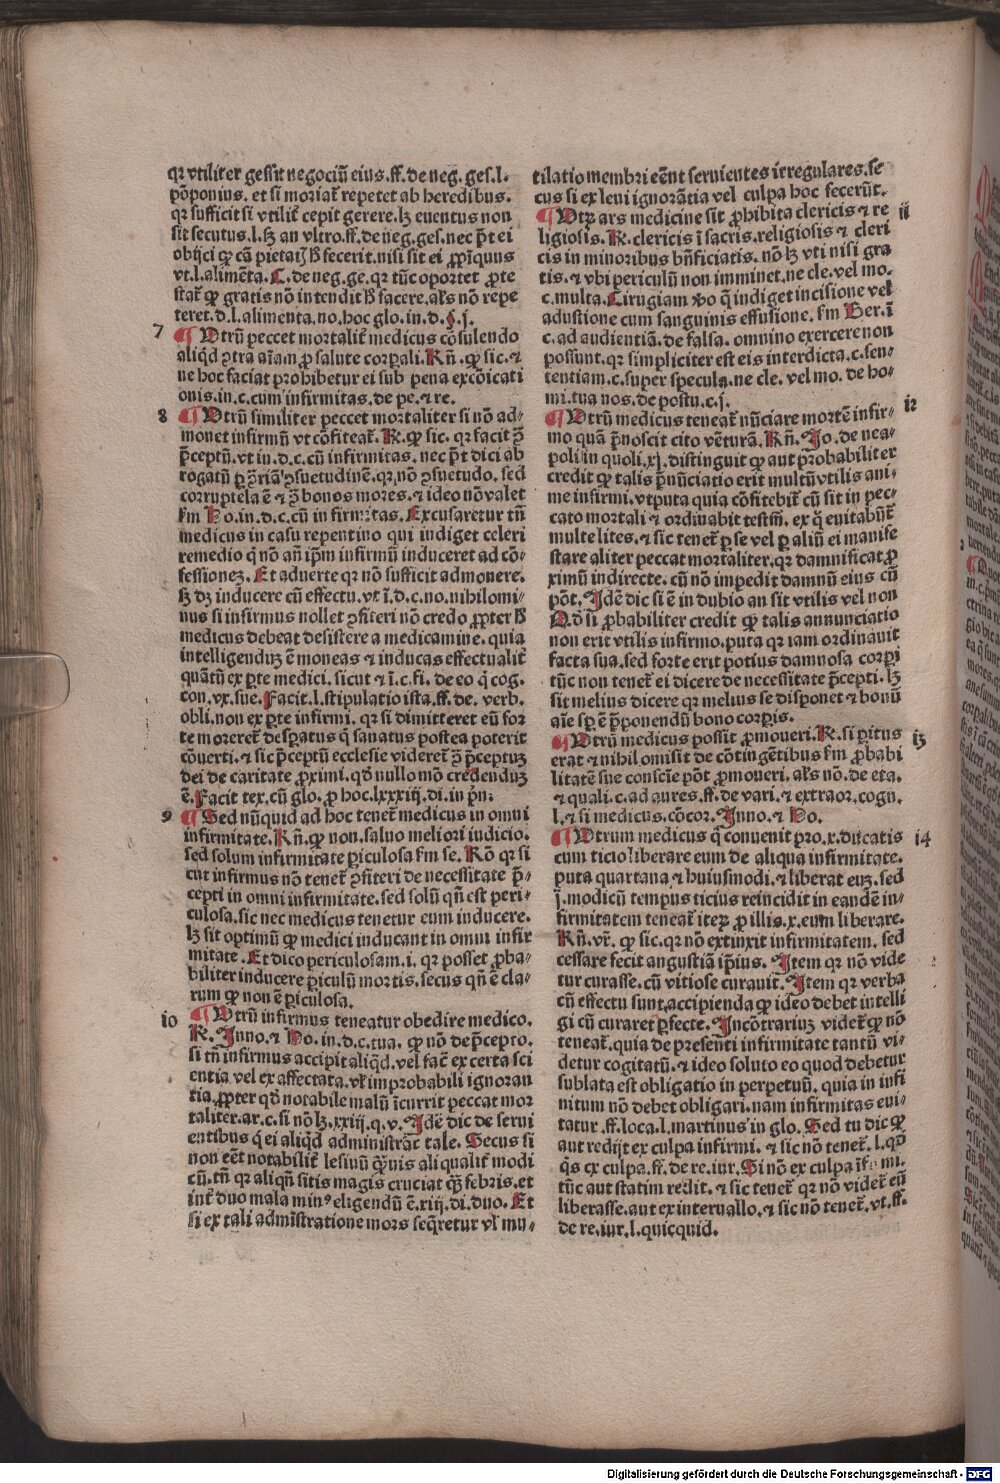 qꝛ vtiliter gessit negociū eius.ff.de neg.ges.l.
pōponius. et si moriat̄ repetet ab heredibus.
qꝛ sufficit si vtilit̄ cepit gerere.lꝫ euentus non
sit secutus.l.sꝫ an vltro.ff.de neg.ges.nec p̄t ei
obijci ꝙ cā pietaꝭ h̄ fecerit.nisi sit ei ꝓpīquus
vt.l.alimēta.C.de neg.ge.qꝛ tūc oportet ꝓte
stat̄ ꝙ gratis nō intendit h̄ facere.alꝭs nō repe
teret.d.l.alimenta.no.hoc glo.in.d.§.j.
7 ¶ Vtrū peccet mortalit̄ medicus cōsulendo
aliqd̄ ꝯtra aīam ꝓ salute corꝑali.Rn̄.ꝙ sic.⁊
ne hoc faciat prohibetur ei sub pena excōicati
onis.in.c.cum infirmitas.de pe.⁊ re.
8 ¶ Vtrū similiter peccet mortaliter si nō ad⸗
monet infirmū vt cōfiteat̄.R.ꝙ sic.qꝛ facit ꝯ̄
p̄ceptū.vt in.d.c.cū infirmitas.nec p̄t dici ab
rogatū ꝑ ꝯ̄riā ꝯsuetudinē.qꝛ nō ꝯsuetudo.sed
corruptela ē ⁊ ꝯ̄ bonos mores.⁊ ideo nō valet
km̄ Ho.in.d.c.cū infirmitas.Excusaretur tn̄
medicus in casu repentino qui indiget celeri
remedio q̄ nō an̄ ip̄m infirmū induceret ad cō⸗
fessioneꝫ.Et aduerte qꝛ nō sufficit admonere.
sꝫ dꝫ inducere cū effectu.vt ī.d.c.no.nihilomi⸗
nus si infirmus nollet ꝯfiteri nō credo ꝓpter h̄
medicus debeat desistere a medicamine.quia
intelligenduꝫ ē moneas ⁊ inducas effectualit̄
quātū ex ꝑte medici.sicut ⁊ ī.c.fi.de eo q̄ cog.
con.vx.sue.Facit.l.stipulatio ista.ff.de.verb.
obli.non ex ꝑte infirmi.qꝛ si dimitteret eū for
te moreret̄ desꝑatus q̄ sanatus postea poterit
cōuerti.⁊ sic p̄ceptū ecclesie videret̄ ꝯ̄ p̄ceptuꝫ
dei de caritate ꝓximi.qd̄ nullo mō credenduꝫ
ē.Facit tex.cū glo.ꝓ hoc.lxxxiij.di.in prin̄.
9 ¶ Sed nūquid ad hoc tenet̄ medicus in omni
infirmitate.Rn̄.ꝙ non.saluo meliori iudicio.
sed solum infirmitate ꝑiculosa km̄ se.Rō qꝛ si
cut infirmus nō tenet̄ ꝯfiteri de necessitate p̄⸗
cepti in omni infirmitate.sed solū qn̄ est peri⸗
culosa.sic nec medicus tenetur eum inducere.
lꝫ sit optimū ꝙ medici inducant in omni infir
mitate.Et dico periculosam.i.qꝛ posset ꝓba⸗
biliter inducere ꝑiculū mortis.secus qn̄ ē cla⸗
rum ꝙ non ē ꝑiculosa.
10 ¶ Vtrū infirmus teneatur obedire medico.
R.Inno.⁊ Ho.in.d.c.tua.ꝙ nō de p̄cepto.
si tn̄ infirmus accipit aliqd̄.vel fac̄ ex certa sci
entia vel ex affectata.vl̄ improbabili ignoran
tia.ꝓpter qd̄ notabile malū īcurrit peccat mor
taliter.ar.c.si nō lꝫ.xxiij.q.v.Idē dic de serui
entibus q̄ ei aliqd̄ administrāt tale.Secus si
non eēt notabilit̄ lesiuū q̄uis aliqualit̄ modi
cū.tn̄ qꝛ aliqn̄ sitis magis cruciat q̄ꝫ febris.et
int̄ duo mala minꝰ eligendū ē.xiij.di.duo.Et
si ex tali administratione mors seq̄retur vl̄ mu⸗
tilatio membri eēnt seruientes irregulares.se
cus si ex leui ignorātia vel culpa hoc fecerūt.
¶ Vtꝝ ars medicine sit ꝓhibita clericis ⁊ re 11
ligiosis.R.clericis ī sacris.religiosis ⁊ cleri
cis in minoribus bn̄ficiatis.nō lꝫ vti nisi gra
tis.⁊ vbi periculū non imminet.ne cle.vel mo.
c.multa.Cirugiam ꝟo q̄ indiget incisione vel
adustione cum sanguinis effusione.km̄ Ber.ī
c.ad audientiā.de falsa.omnino exercere non
possunt.qꝛ simpliciter est eis interdicta.c.sen⸗
tentiam.c.super specula.ne cle.vel mo.de ho⸗
mi.tua nos.de postu.c.j.
¶ Vtrū medicus teneat̄ nūciare mortē infir⸗ 12
mo quā p̄noscit cito vēturā.Rn̄.Jo.de nea⸗
poli in quoli.xj.distinguit ꝙ aut probabiliter
credit ꝙ talis p̄nūciatio erit multū vtilis ani⸗
me infirmi.vtputa quia cōfitebit̄ cū sit in pec⸗
cato mortali ⁊ ordinabit testm̄.ex q̄ euitabūt̄
multe lites.⁊ sic tenet̄ ꝑ se vel ꝑ aliū ei manife
stare aliter peccat mortaliter.qꝛ damnificat ꝓ
ximū indirecte.cū nō impedit damnū eius cū
pōt.Idē dic si ē in dubio an sit vtilis vel non
Qd̄ si ꝓbabiliter credit ꝙ talis annunciatio
non erit vtilis infirmo.puta qꝛ iam ordinauit
facta sua.sed forte erit potius damnosa corꝑi
tūc non tenet̄ ei dicere de necessitate p̄cepti.lꝫ
sit melius dicere qꝛ melius se disponet ⁊ bonū
aīe sꝑ ē p̄ponendū bono corꝑis.
¶ Vtrū medicus possit ꝓmoueri.R.si ꝑitus 13
erat ⁊ nihil omisit de cōtingētibus km̄ ꝓbabi
litatē sue conscīe pōt ꝓmoueri.alꝭs nō.de eta.
⁊ quali.c.ad aures.ff.de vari.⁊ extraor.cogn.
l.⁊ si medicus.cōcor.Inno.⁊ Ho.
¶ Vtrum medicus q̄ conuenit pro.x.ducatis 14
cum ticio liberare eum de aliqua infirmitate.
puta quartana ⁊ huiusmodi.⁊ liberat euꝫ.sed
ī.modicū tempus ticius reincidit in eandē in⸗
firmitatem teneat̄ iteꝝ ꝓ illis.x.eum liberare.
Rn̄.vr̄.ꝙ sic.qꝛ nō extinxit infirmitatem.sed
cessare fecit angustiā ip̄ius.Item qꝛ nō vide
tur curasse.cū vitiose curauit.Item qꝛ verba
cū effectu sunt accipienda ꝙ ideo debet intelli
gi cū curaret ꝑfecte.Incōtrariuꝫ videt̄ ꝙ nō
teneat̄.quia de presenti infirmitate tantū vi⸗
detur cogitatū.⁊ ideo soluto eo quod debetur
sublata est obligatio in perpetuū.quia in infi
nitum nō debet obligari.nam infirmitas eui⸗
tatur.ff.loca.l.martinus in glo.Sed tu dic ꝙ
aut redijt ex culpa infirmi.⁊ sic nō tenet̄.l.qd̄
q̄s ex culpa.ff.de re.iur.Si nō ex culpa īfirmi.
tūc aut statim redit.⁊ sic tenet̄ qꝛ nō videt̄ eū
liberasse.aut ex interuallo.⁊ sic nō tenet̄.vt.ff.
de re.iur.l.quicquid.
Digitalisierung gefördert durch die Deutsche Forschungsgemeinschaft - DFG